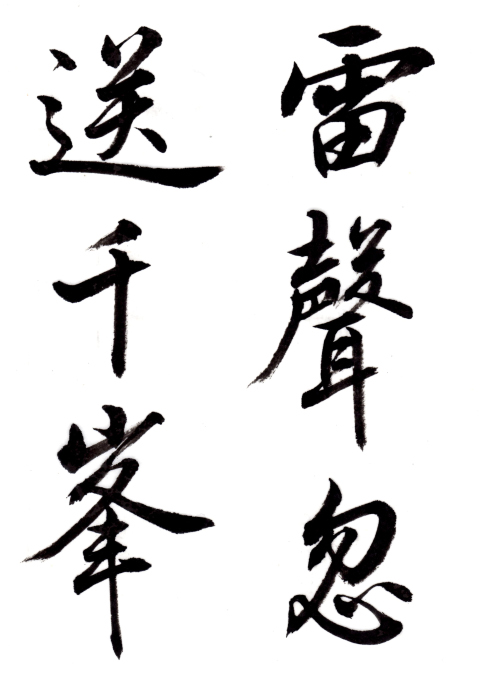 雷聲忽
送千峯